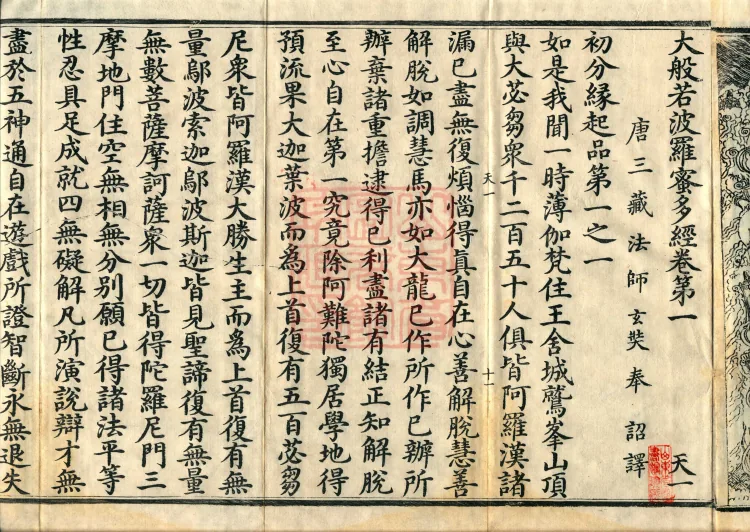 大般若波羅蜜多經卷第一 天一
唐三藏法師玄奘奉 詔譯
初分緣起品第一之一
如是我聞一時薄伽梵住王舍城鷲峯山頂
與大苾芻衆千二百五十人俱皆阿羅漢諸
天一 十一
漏已盡無復煩惱得眞自在心善解脫慧善
解脫如調慧馬亦如大龍已作所作已辦所
辦棄諸重擔逮得已利盡諸有結正知解脫
至心自在第一究竟除阿難陀獨居學地得
預流果大迦葉波而爲上首復有五百苾芻
尼衆皆阿羅漢大勝生主而爲上首復有無
量鄔波索迦鄔波斯迦皆見聖諦復有無量
無數菩薩摩訶薩衆一切皆得陀羅尼門三
摩地門住空無相無分別願已得諸法平等
性忍具足成就四無礙解凡所演說辯才無
盡於五神通自在遊戲所證智斷永無退失